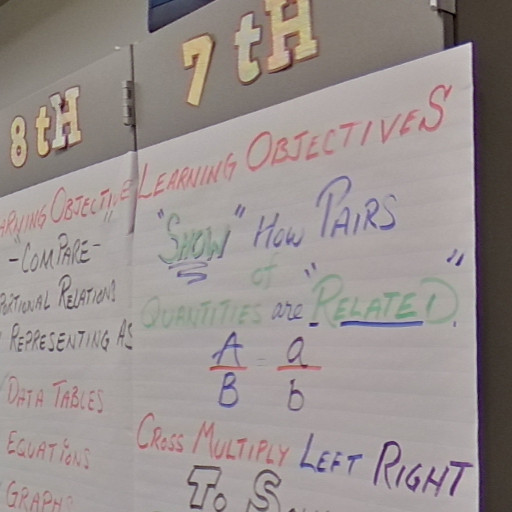 8tH
ARNING OBJECTIVE
"COMPARE"
PORTIONAL RELATIONS
REPRESENTING AS
DATA TABLES
EQUATIONS
GRAPH
7tH
LEARNING OBJECTIVES
"SHOW" HOW PAIRS
of
QUANTITIES are "RELATED."
A = a
B b
CROSS MULTIPLY LEFT RIGHT
To